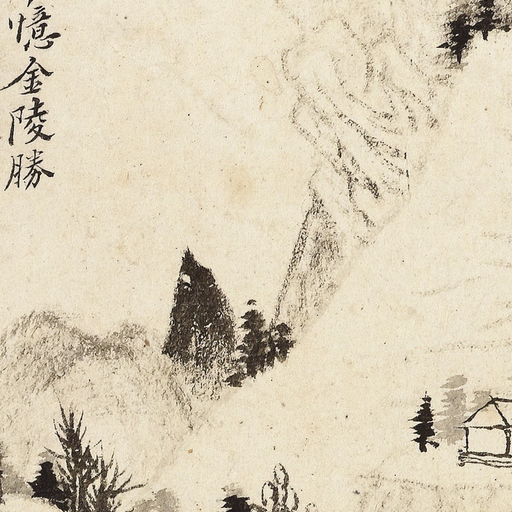 憶金陵勝